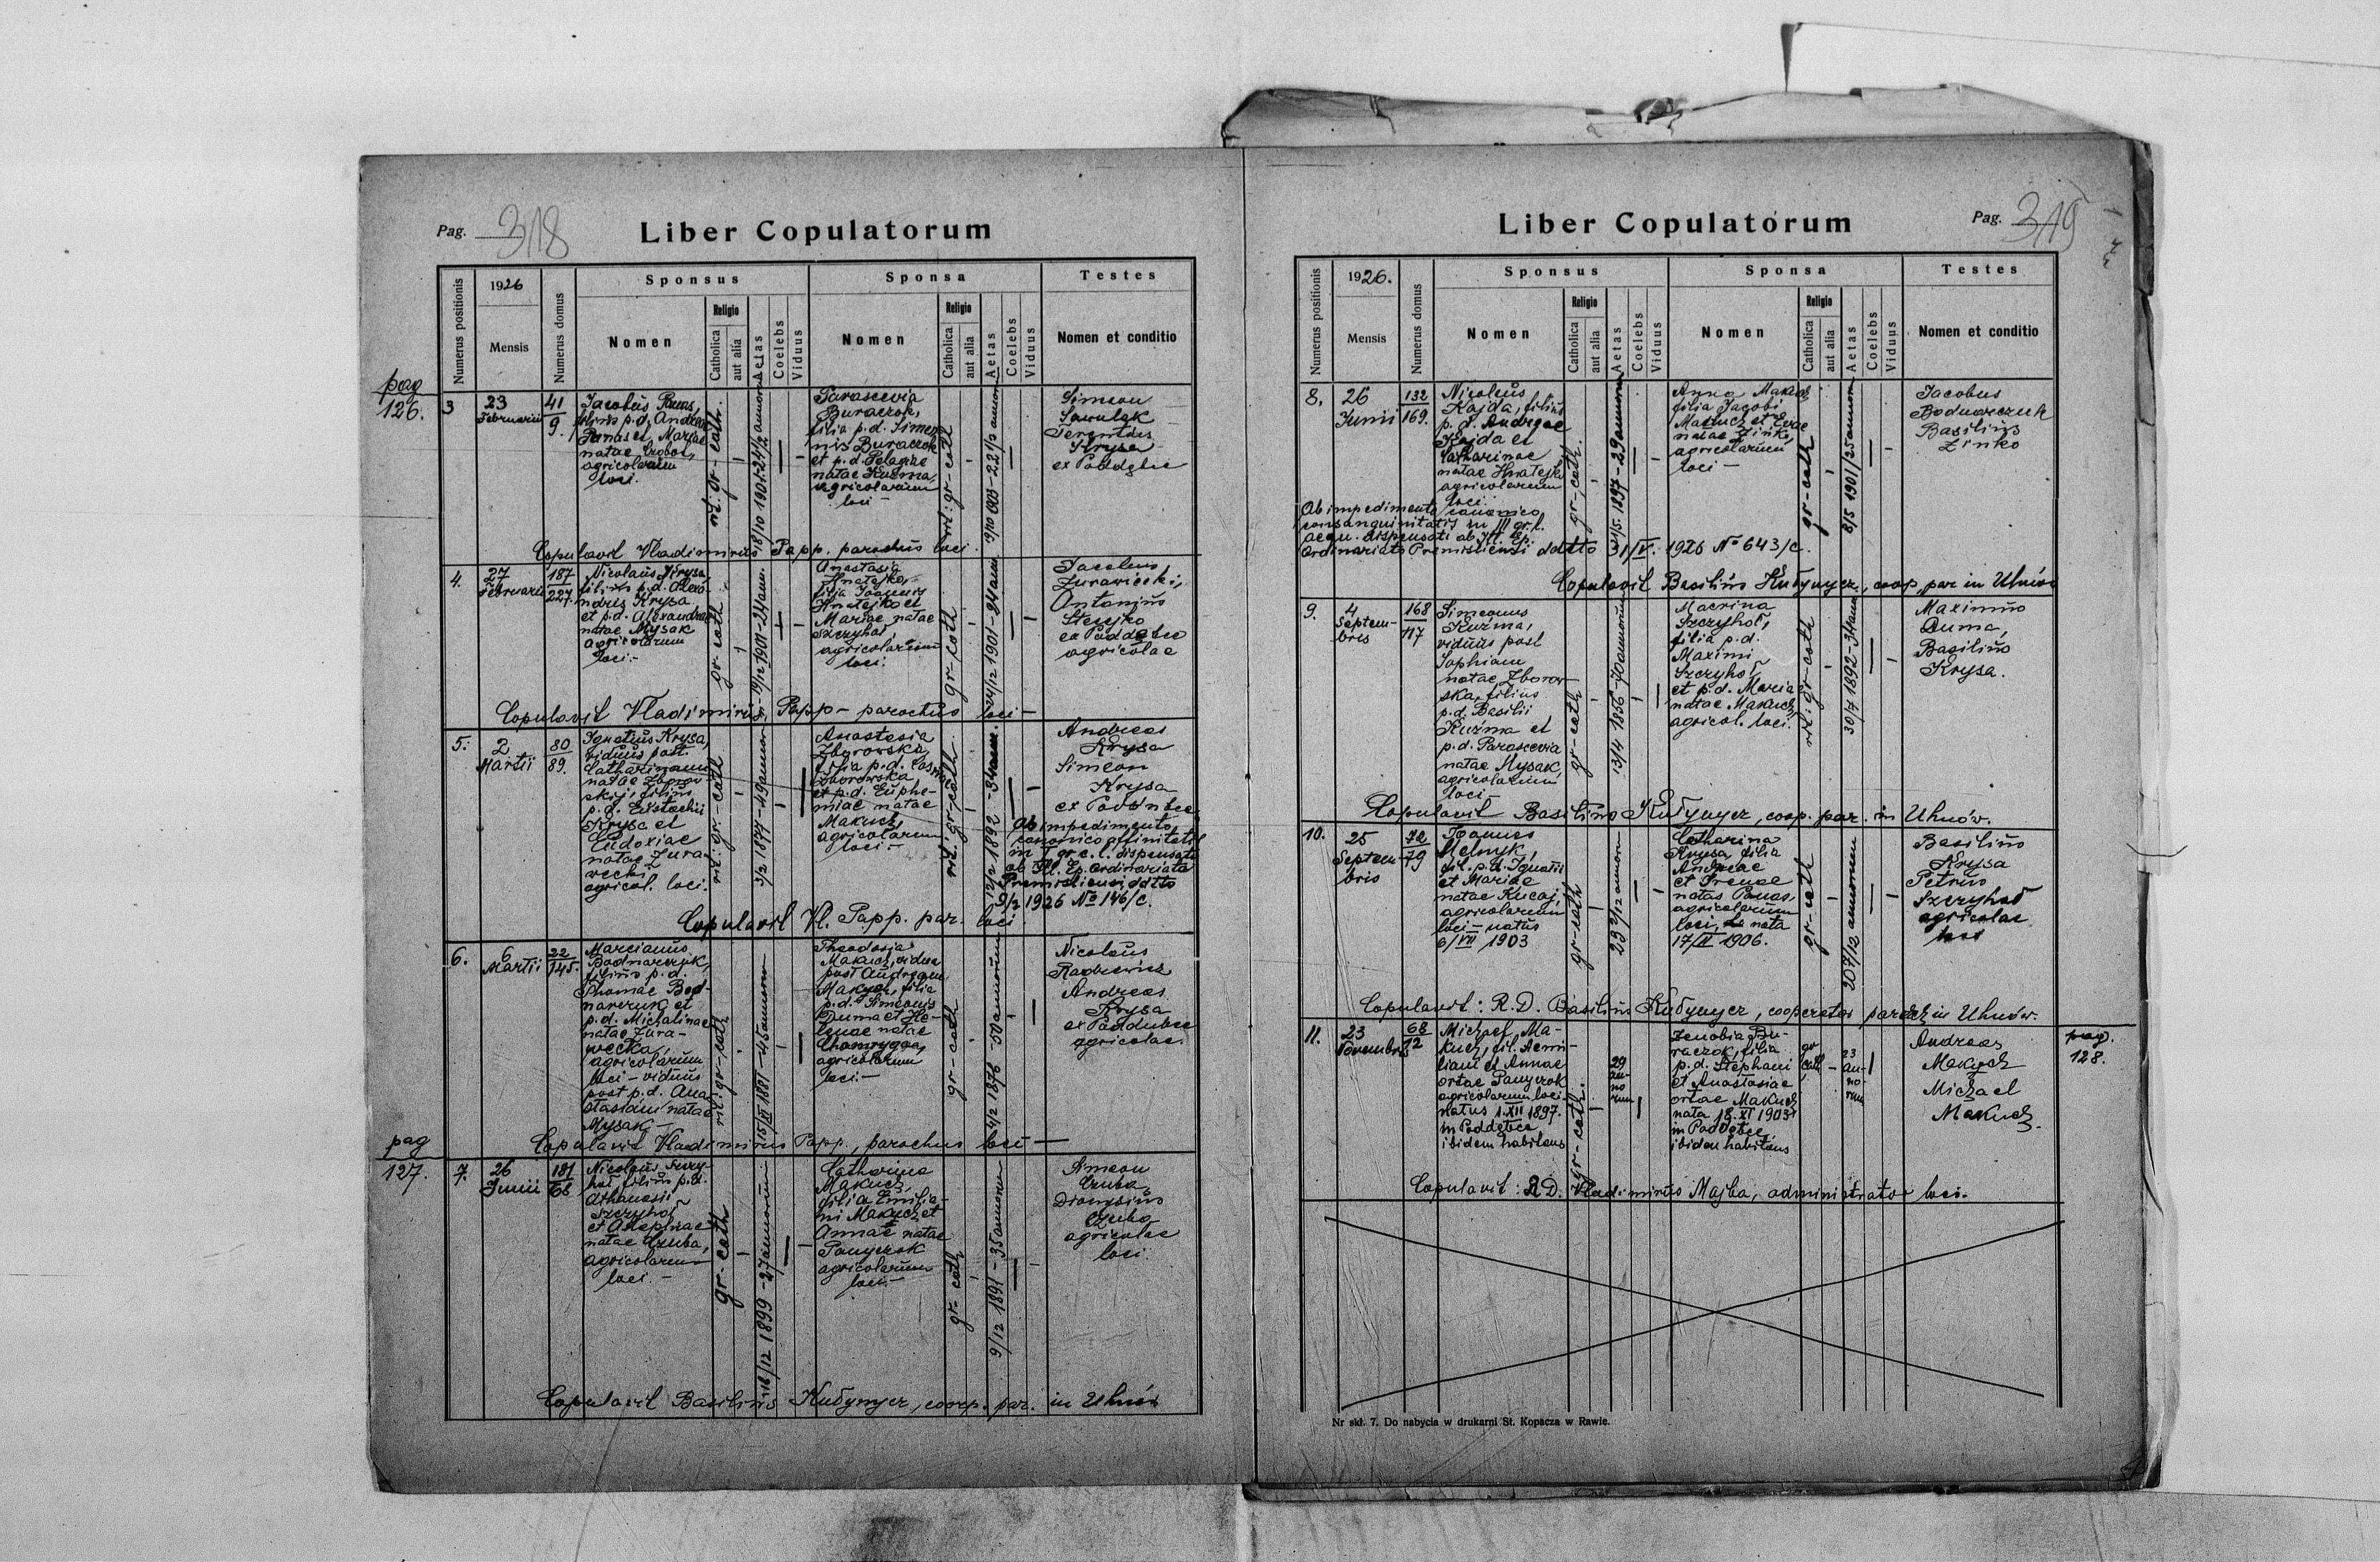 Pag. 318
Liber Copulatorum
Numerus positionis
1926
Mensis
Numerus domus
Sponsus
Nomen
Religio
Catholica
aut alia
Aetas
Coelebs
Viduus
Sponsa
Nomen
Religio
Catholica
aut alia
Aetas
Coelebs
Viduus
Testes
Nomen et conditio
pag
126.
3
23
Februarii
41
9.
Jacobus Panas,
filius p.d. Andreae
Panas et Mariae
natae
agricolarum
loci.
rit. gr-cath.
18/10 1901-24 1/2 annorum
Parascevia
Buraczok,
filia p.d. Simeo
nis Buraczok
et p.d. Pelagiae
natae Kuzma,
agricolarum
loci -
rit: gr-cath
Simeon
Sawulak
Terentius
Krysa
ex Poddębce
Copulavit Vladimirus Papp. parochus loci.
4.
27
Februarii
187
227.
Nicolaus Krysa,
filius p.d. Alexa-
ndris Krysa
et p.d. Alexandrae
natae Mysak
agricolarum
loci.-
gr-cath
19/12 1901-24 ann.
Anastasia
Hnatejko,
filia Joannis
Hnatejko et
Mariae natae
Szczyhoł
agricolarum
loci.
gr-cath
24/12 1901-24 ann.
Jacobus
Zurawiecki,
Antonius
Stecyko
ex Poddębce
agricolae
Copulavit Vladimirus Papp - parochus loci -
5.
2
Martii
80
89.
Ignatius Krysa,
viduus post.
Catharinam
natae Zborow-
skij, filius
p.d. Eustachii
Krysa et
Eudoxiae
natae Zura-
wecki
agricol. loci.
rit: gr-cath
3/2 1877-49 annor
Anastasia
Zborowska,
filia p.d.
Zborowska,
et p.d. Euphe-
miae natae
Makuch,
agricolarum
loci -
rit. gr-cath.
12/2 1892-34 ann.
Andreas
Krysa
Simeon
Krysa
ex Poddubce
Ab impedimento
canonico affinitatis
in I gr. c. l. dispensati
ab Ill. Ep. Ordinariato
Premisliensi ddtto
9/2 1926 No 146/c.
Copulavit Vl. Papp. par. loci
6.
6
Martii
22
145.
Marcianus
Bodnarczuk,
filius p.d.
Thomae Bod-
narczuk et
p.d. Michalinae
natae Zura-
wecka,
agricolarum
loci - viduus
post p.d. Ana-
stasiam natae
Mysak -
rit: gr-cath
15/VI 1881-45 annorum
Theodosia
Makuch, vidua
post Andream
Makuch, filia
p.d. Simeonis
Duma et He-
lenae natae
agricolarum
loci.-
gr-cath
4/2 1876-50 annorum
Nicolaus
Radkiewicz
Andreas
Krysa
ex Poddubce
agricolae.
Copulavit Vladimirus Papp, parochus loci -
pag
127.
7.
26
Junii
181
68
Nicolaus Szczy-
hoł, filius p.d.
Athanasii
Szczyhoł
et Agephiae
natae Czuba,
agricolarum
loci.-
gr-cath
16/12 1899-27 annorum
Catharina
Makuch,
filia Emilia-
ni Makuch et
Annae natae
Panyczok
agricolarum
loci.-
gr-cath
9/12 1891-35 annorum
Simeon
Czuba,
Dionysius
Czuba
agricolae
loci.
Copulavit Basilius Kubynycz, coop. par. in Uhnów
Pag. 319
Liber Copulatorum
Numerus positionis
1926.
Mensis
Numerus domus
Sponsus
Nomen
Religio
Catholica
aut alia
Aetas
Coelebs
Viduus
Sponsa
Nomen
Religio
Catholica
aut alia
Aetas
Coelebs
Viduus
Testes
Nomen et conditio
8.
26
Junii
132
169.
Nicolaus
Kajda, filius
p.d. Andreae
Kajda et
Catharinae
natae Hnatejko
agricolarum
loci.
gr-cath.
21/5. 1897-29 annorum
Anna Makuch
filia Jacobi
Makuch et Evae
natae Zinko,
agricolarum
loci -
gr-cath
8/5 1901/25 annorum
Jacobus
Bodnarczuk
Basilius
Zinko
Ab impedimento canonico
consanguinitatis in III gr. l.
aequ. dispensati ab Ill. Ep.
Ordinariato Premisliensi ddtto 31/V. 1926 No 643/c.
Copulavit Basilius Kubynycz, coop. par in Uhnów
9.
4
Septem-
bris
168
117
Simeonus
Kuzma,
viduus post
Sophiam
natae Zborow-
ska, filius
p.d. Basilii
Kuzma et
p.d. Parascevia
natae Mysak,
agricolarum
loci -
gr-cath
13/4 1856-70 annorum
Macrina
Szczyhoł,
filia p.d.
Maximi
Szczyhoł
et p.d. Maria
natae Makuch,
agricol. loci.
rit: gr-cath
30/7 1892-34 ann.
Maximus
Duma,
Basilius
Krysa.
Copulavit Basilius Kubynycz, coop. par. in Uhnów.
10.
25
Septem-
bris
72
79
Joannes
Melnyk,
fil. p.d. Ignatii
et Mariae
natae Kucaj,
agricolarum
loci - natus
6/VII 1903
gr-cath
23 2/12 annorum
Catharina
Krysa, filia
Andreae
et Irenae
natae Panas,
agricolarum
loci, nata
17/II 1906.
gr-cath
20 7/12 annorum
Basilius
Krysa
Petrus
Szczyhoł
agricolae
loci
Copulavit: R.D. Basilius Kubynycz, cooperator paroch in Uhnów.
11.
23
Novembris
68
12
Michael Ma-
kuch, fil. Aemi-
liani et Annae
ortae Panyczok
agricolarum loci.
natus 1.XII 1897.
in Poddębce
ibidem habitans
gr-cath.
29
an-
no-
rum
Zenobia Bu-
raczok, filia
p.d. Stephani
et Anastasiae
ortae Makuch
nata 18.XI 1903
in Poddębce,
ibidem habitans
gr
cath
23
an-
no-
rum
Andreas
Makuch
Michael
Makuch.
pag.
128.
Copulavit: R.D. Vladimirus Majba, administrator loci.
Nr skł. 7. Do nabycia w drukarni St. Kopacza w Rawie.